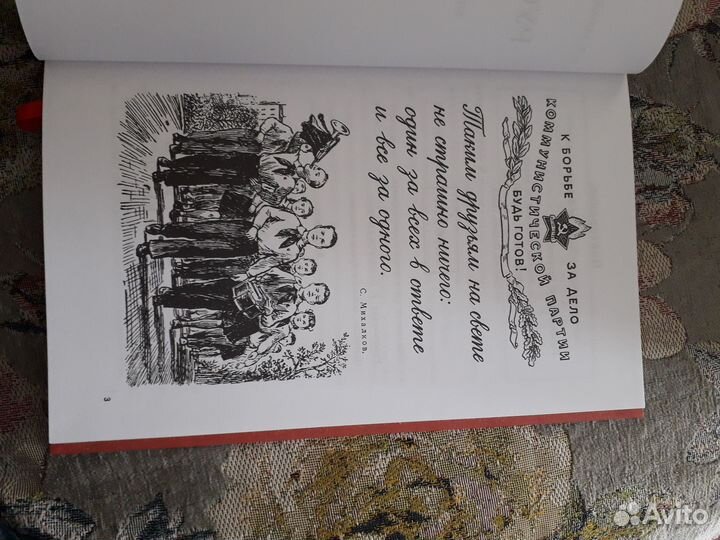 К БОРЬБЕ ЗА ДЕЛО
КОММУНИСТИЧЕСКОЙ ПАРТИИ
БУДЬ ГОТОВ!
Таким друзьям на свете
не страшно ничего:
один за всех в ответе
и все за одного.
С. Михалков.
3
Avito